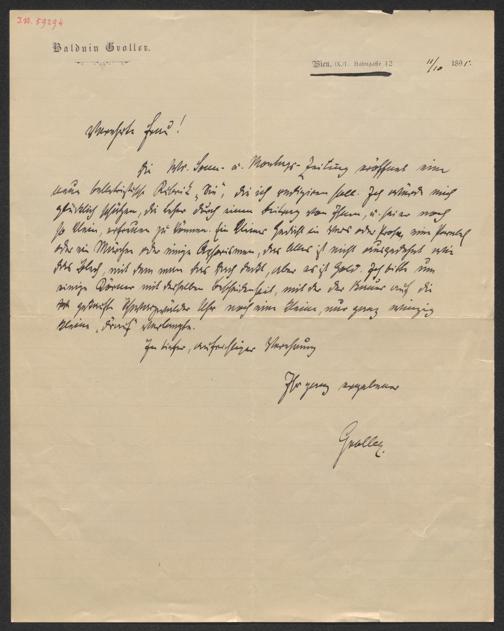 I.N. 59294
Balduin Groller.
Wien, IX/1. Hahngasse 12 11/10 1895.
Verehrte Frau!
Die Wr. Sonn- u. Montags-Zeitung eröffnet eine
neue belletristische Rubrik, die ich redigiren soll. Ich würde mich
glücklich schätzen, die Leser durch einen Beitrag von Ihnen, u. sei er noch
so klein, erfreuen zu können. Ein kleines Gedicht in Vers oder Prosa, eine Parabel
oder ein Märchen oder einige Aphorismen, das Alles ist nicht ausgedehnt wie
das Blech, mit dem man das Dach deckt, aber es ist Gold. Ich bitte um
einige Körner mit derselben Bescheidenheit, mit der der Bauer auf die
gekaufte Schwarzwälder Uhr noch eine kleine, nur ganz winzig
kleine, drauf verlangte.
In tiefer, aufrichtiger Verehrung
Ihr ganz ergebener
Groller.